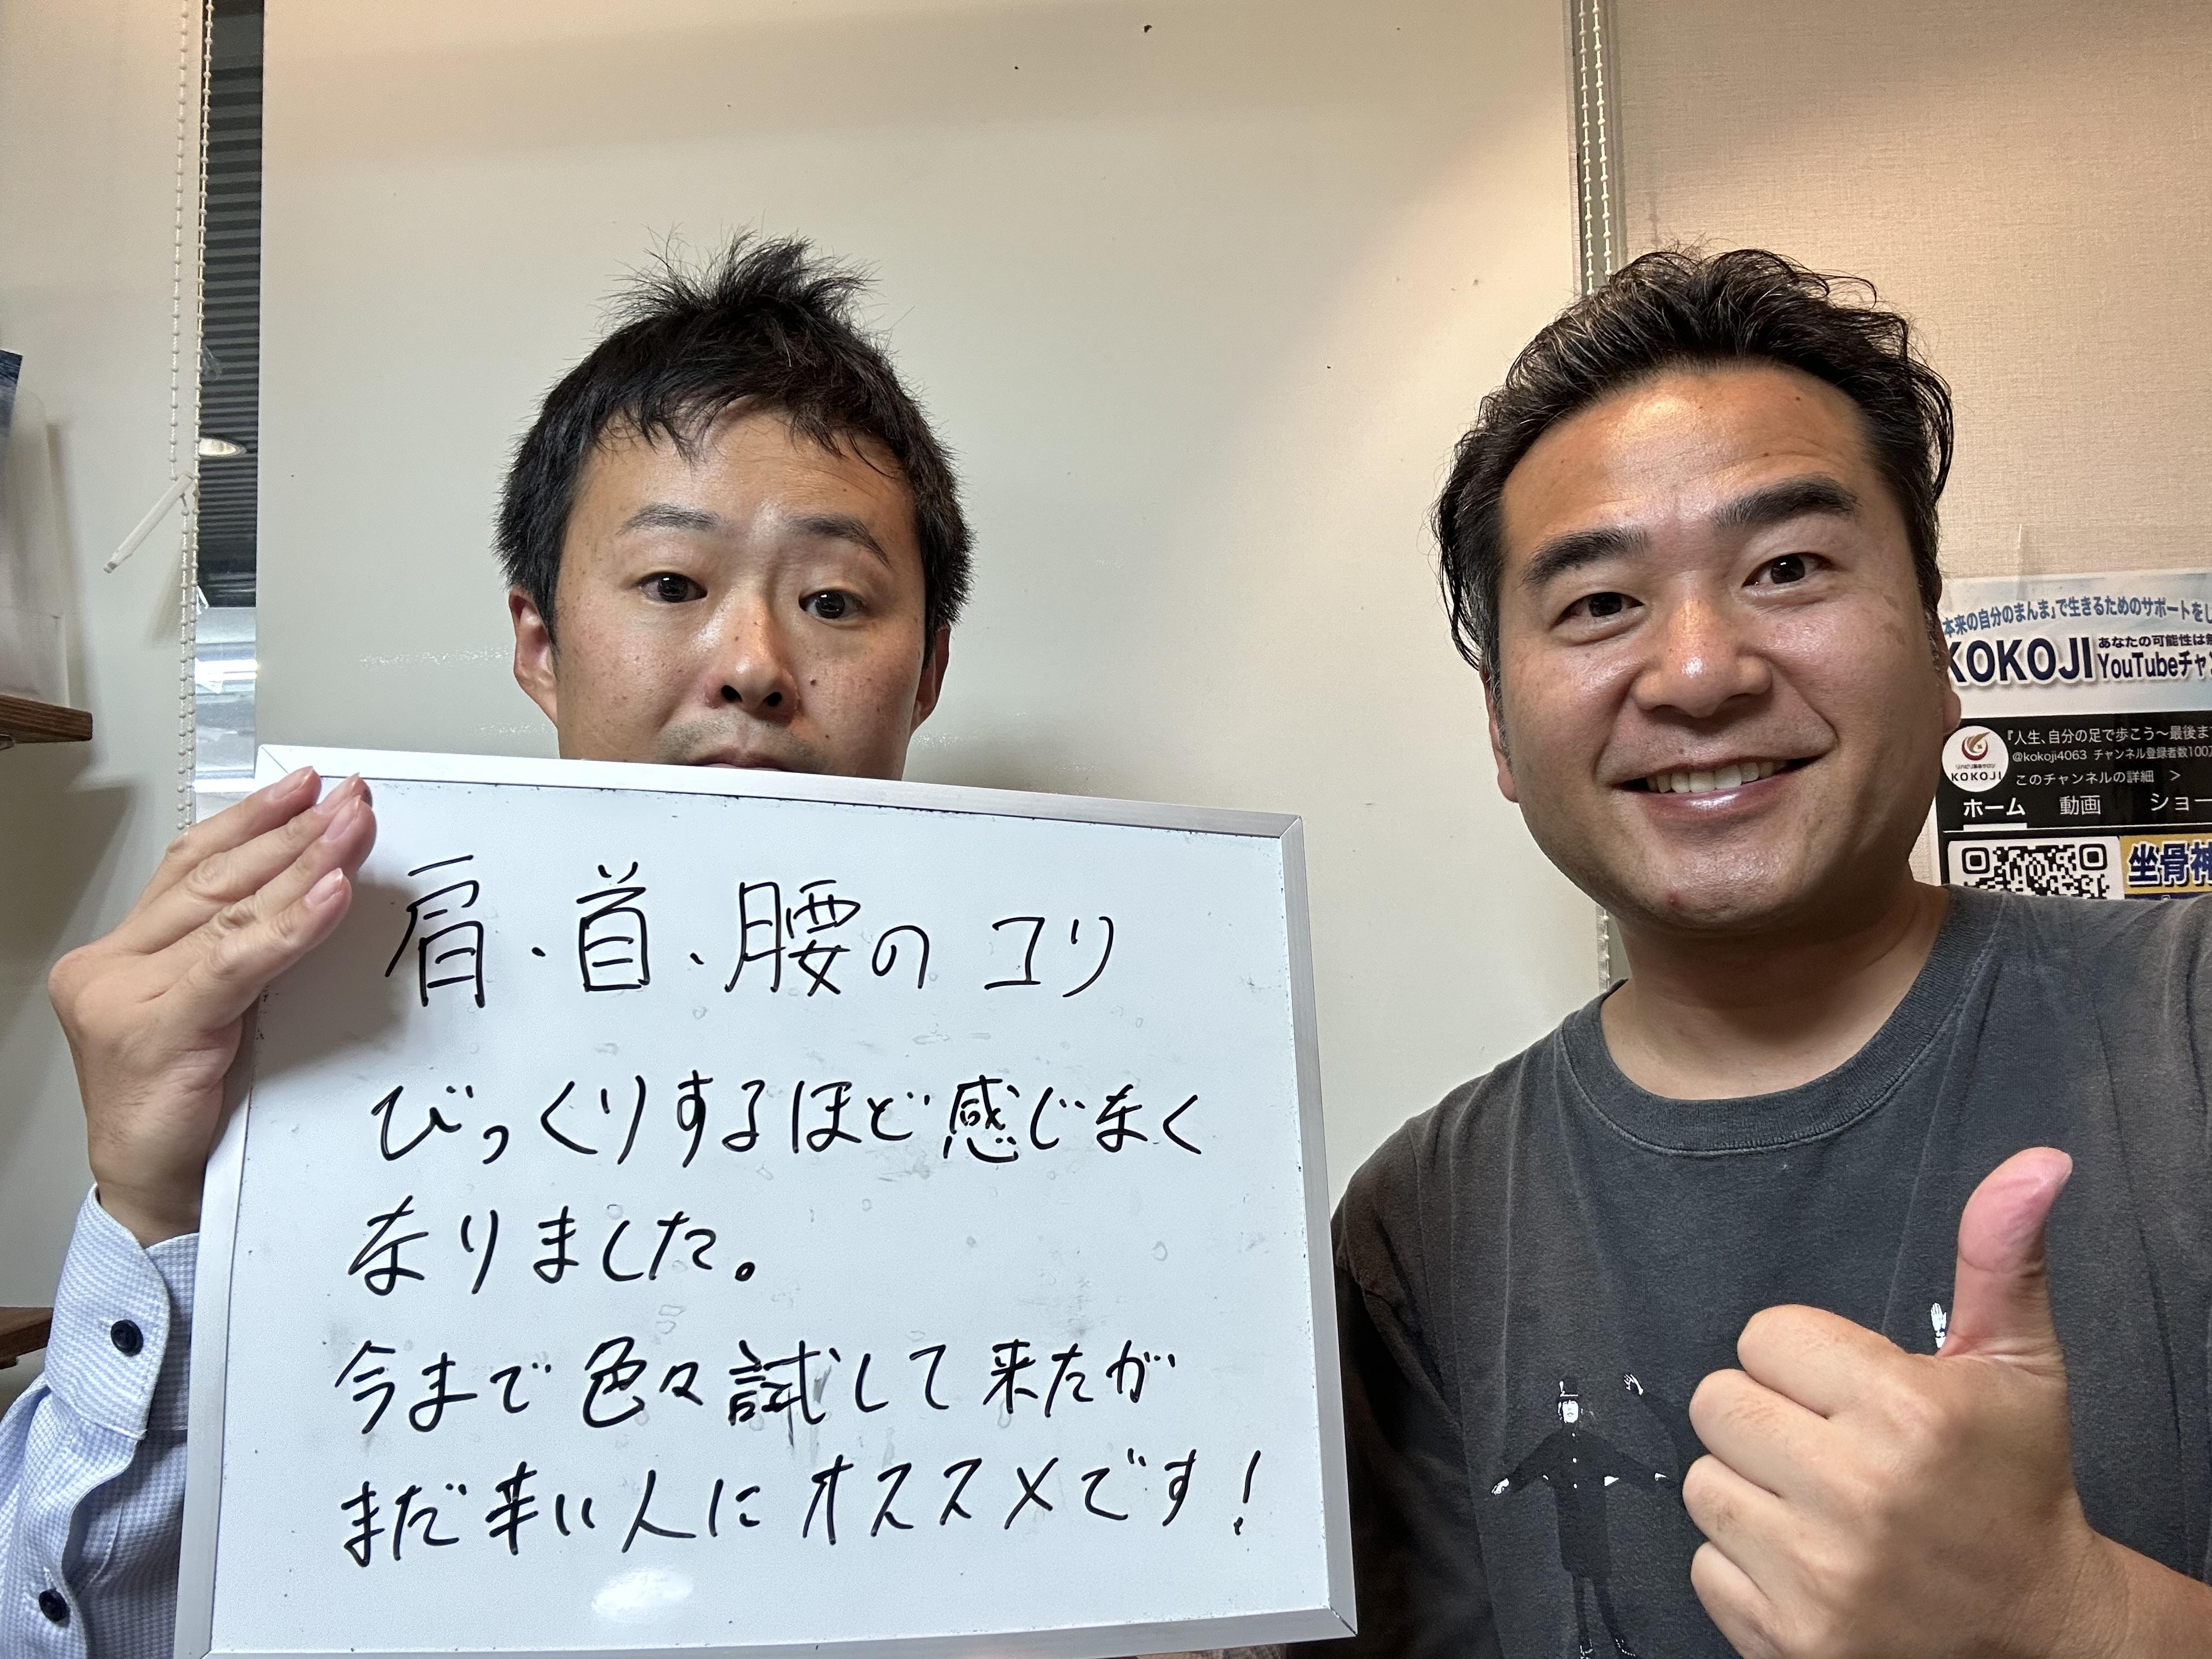 肩・首・腰のコリ
びっくりするほど感じなく
なりました。
今まで色々試して来たが
まだ辛い人にオススメです!
本来の自分のまんま」で生きるためのサポートをし
KOKOJI
あなたの可能性は
YouTubeチャ
『人生、自分の足で歩こう〜最後ま
@kokoji4063 チャンネル登録者数100
このチャンネルの詳細 >
KOKOJI
ホーム 動画 ショー
坐骨神